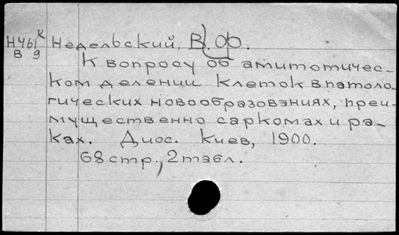 Н461к Недельский, В. Ф.
В 9
К вопросу об амитотичес-
ком делении клеток в патоло-
гических новообразованиях, преи-
мущественно саркомах и ра-
ках. Дисс. Киев, 1900.
68 стр., 2 табл.